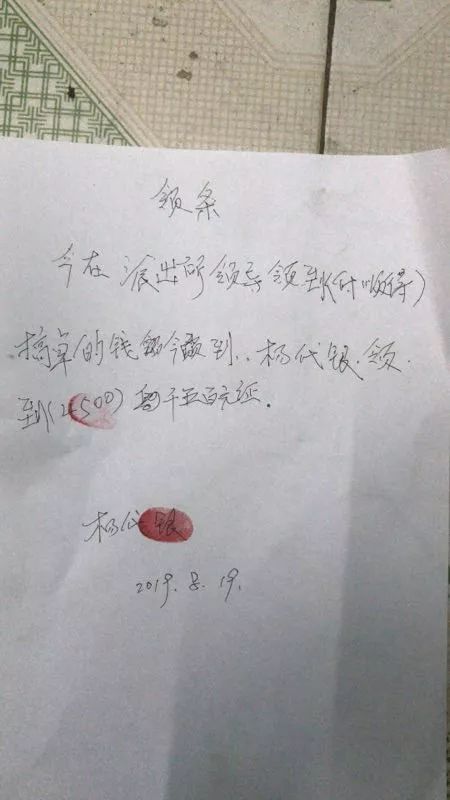 领条
今在派出所领导领到(付顺得)
搞草的钱 今领到..杨代银.领.
到(2500) 千五百元正.
杨代银
2019.8.19.